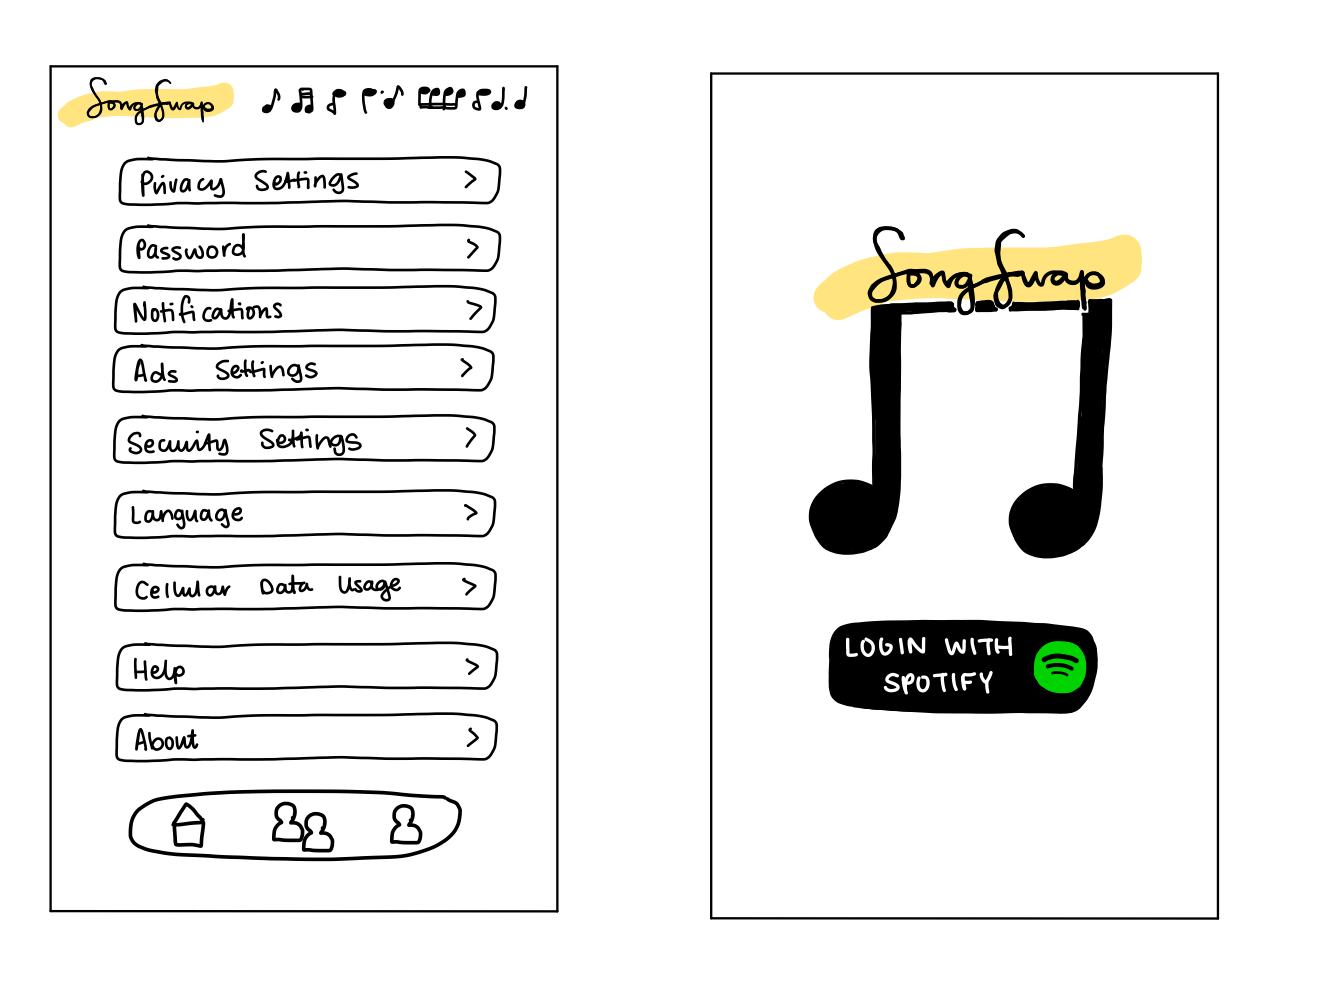 Song Swap
Privacy Settings >
Password >
Notifications >
Ads Settings >
Security Settings >
Language >
Cellular Data Usage >
Help >
About >
Song Swap
LOGIN WITH
SPOTIFY